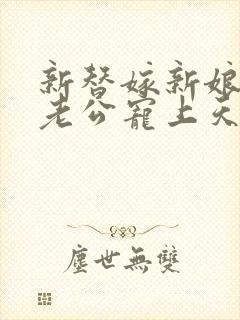 新替嫁新娘
老公寵上天
塵世無雙